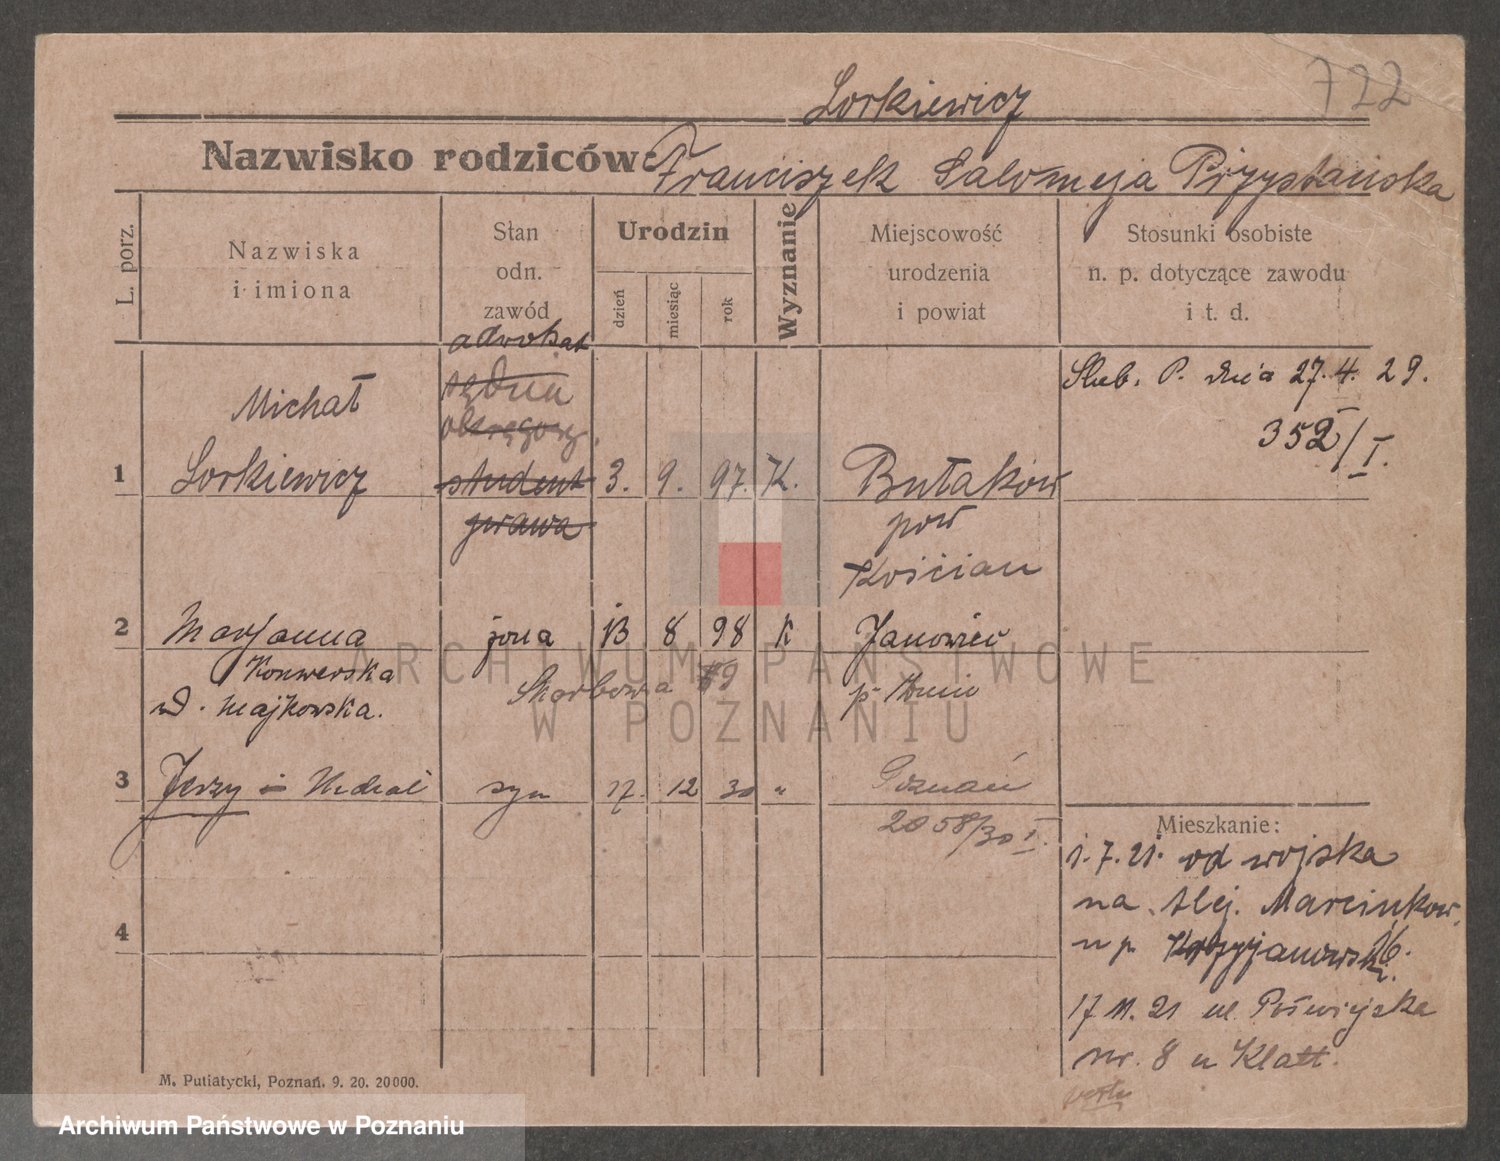 722
Lorkiewicz
Nazwisko rodziców: Franciszek Salomeja Przystańska
L. porz.
Nazwiska
i imiona
Stan
odn.
zawód
Urodzin
dzień
miesiąc
rok
Wyznanie
Miejscowość
urodzenia
i powiat
Stosunki osobiste
n. p. dotyczące zawodu
i t. d.
adwokat
sędzia
okręgowy
student
prawa
1
Michał
Lorkiewicz
3. 9. 97. K.
Bułaków
pow
Kościan
Slub. P. dnia 27.4.29.
352/I.
2 Marjanna żona 13 8 98 K Janowiec
Konwerska
d. Majkowska.
Skarbowa
p. Żnin
3 Jerzy - Michał syn 17. 12 30 " Poznań
2058/30 I.
4
Mieszkanie:
1.7.21. od wojska
na Alej. Marcinkow.
n p. Krzyżanowski 26.
17 11. 21 ul. Półwiejska
nr. 8 u Klatt.
verte
M. Putiatycki, Poznań. 9. 20. 20000.
ARCHIWUM PAŃSTWOWE
W POZNANIU
Archiwum Państwowe w Poznaniu